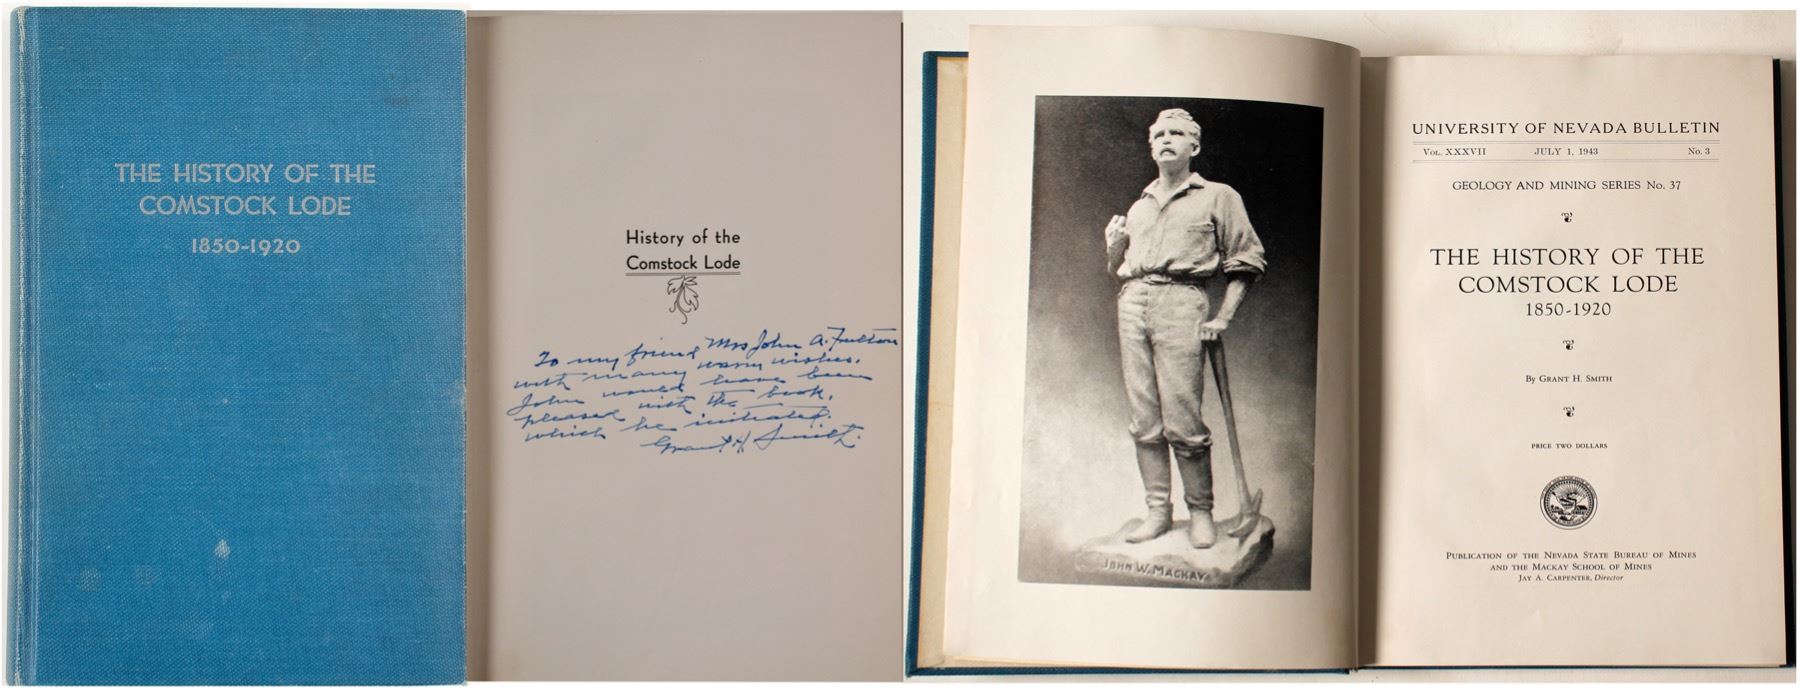 THE HISTORY OF THE
COMSTOCK LODE
1850-1920
History of the
Comstock Lode
To my friend Mrs John A. Fulton
with many warm wishes.
John would have been
pleased with the book,
which he initiated.
Grant H Smith.
JOHN W. MACKAY
UNIVERSITY OF NEVADA BULLETIN
VOL. XXXVII JULY 1, 1943 No. 3
GEOLOGY AND MINING SERIES No. 37
THE HISTORY OF THE
COMSTOCK LODE
1850-1920
By GRANT H. SMITH
PRICE TWO DOLLARS
PUBLICATION OF THE NEVADA STATE BUREAU OF MINES
AND THE MACKAY SCHOOL OF MINES
JAY A. CARPENTER, Director